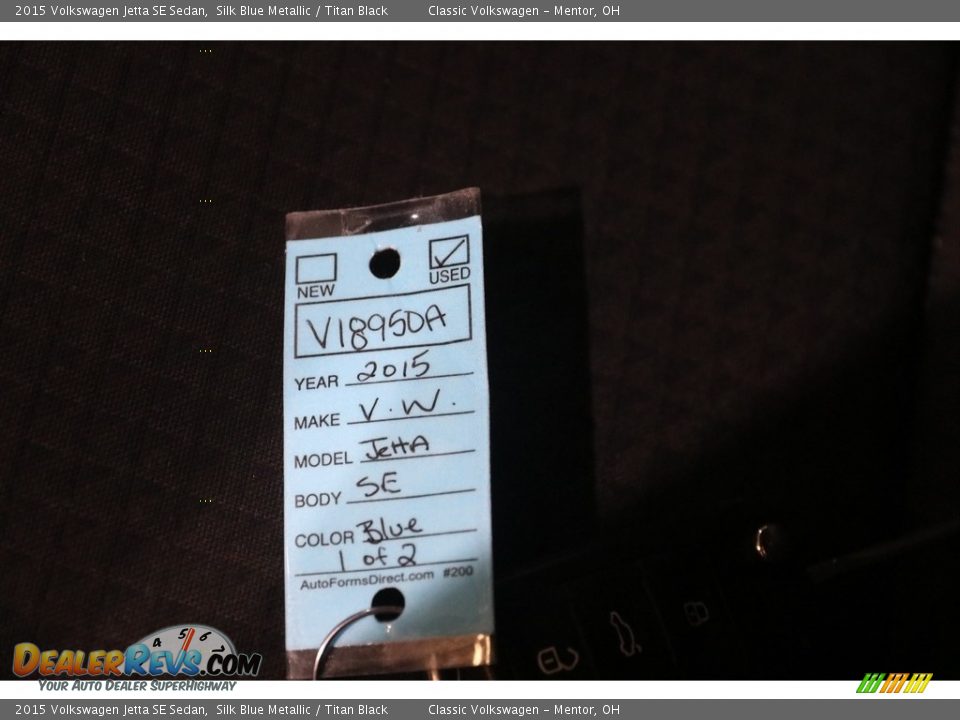 2015 Volkswagen Jetta SE Sedan, Silk Blue Metallic / Titan Black Classic Volkswagen - Mentor, OH
NEW USED
V18950A
YEAR 2015
MAKE V.W.
MODEL Jetta
BODY SE
COLOR Blue
1 of 2
AutoFormsDirect.com #200
4 5 6
DEALERREVS.COM
YOUR AUTO DEALER SUPERHIGHWAY
2015 Volkswagen Jetta SE Sedan, Silk Blue Metallic / Titan Black Classic Volkswagen - Mentor, OH